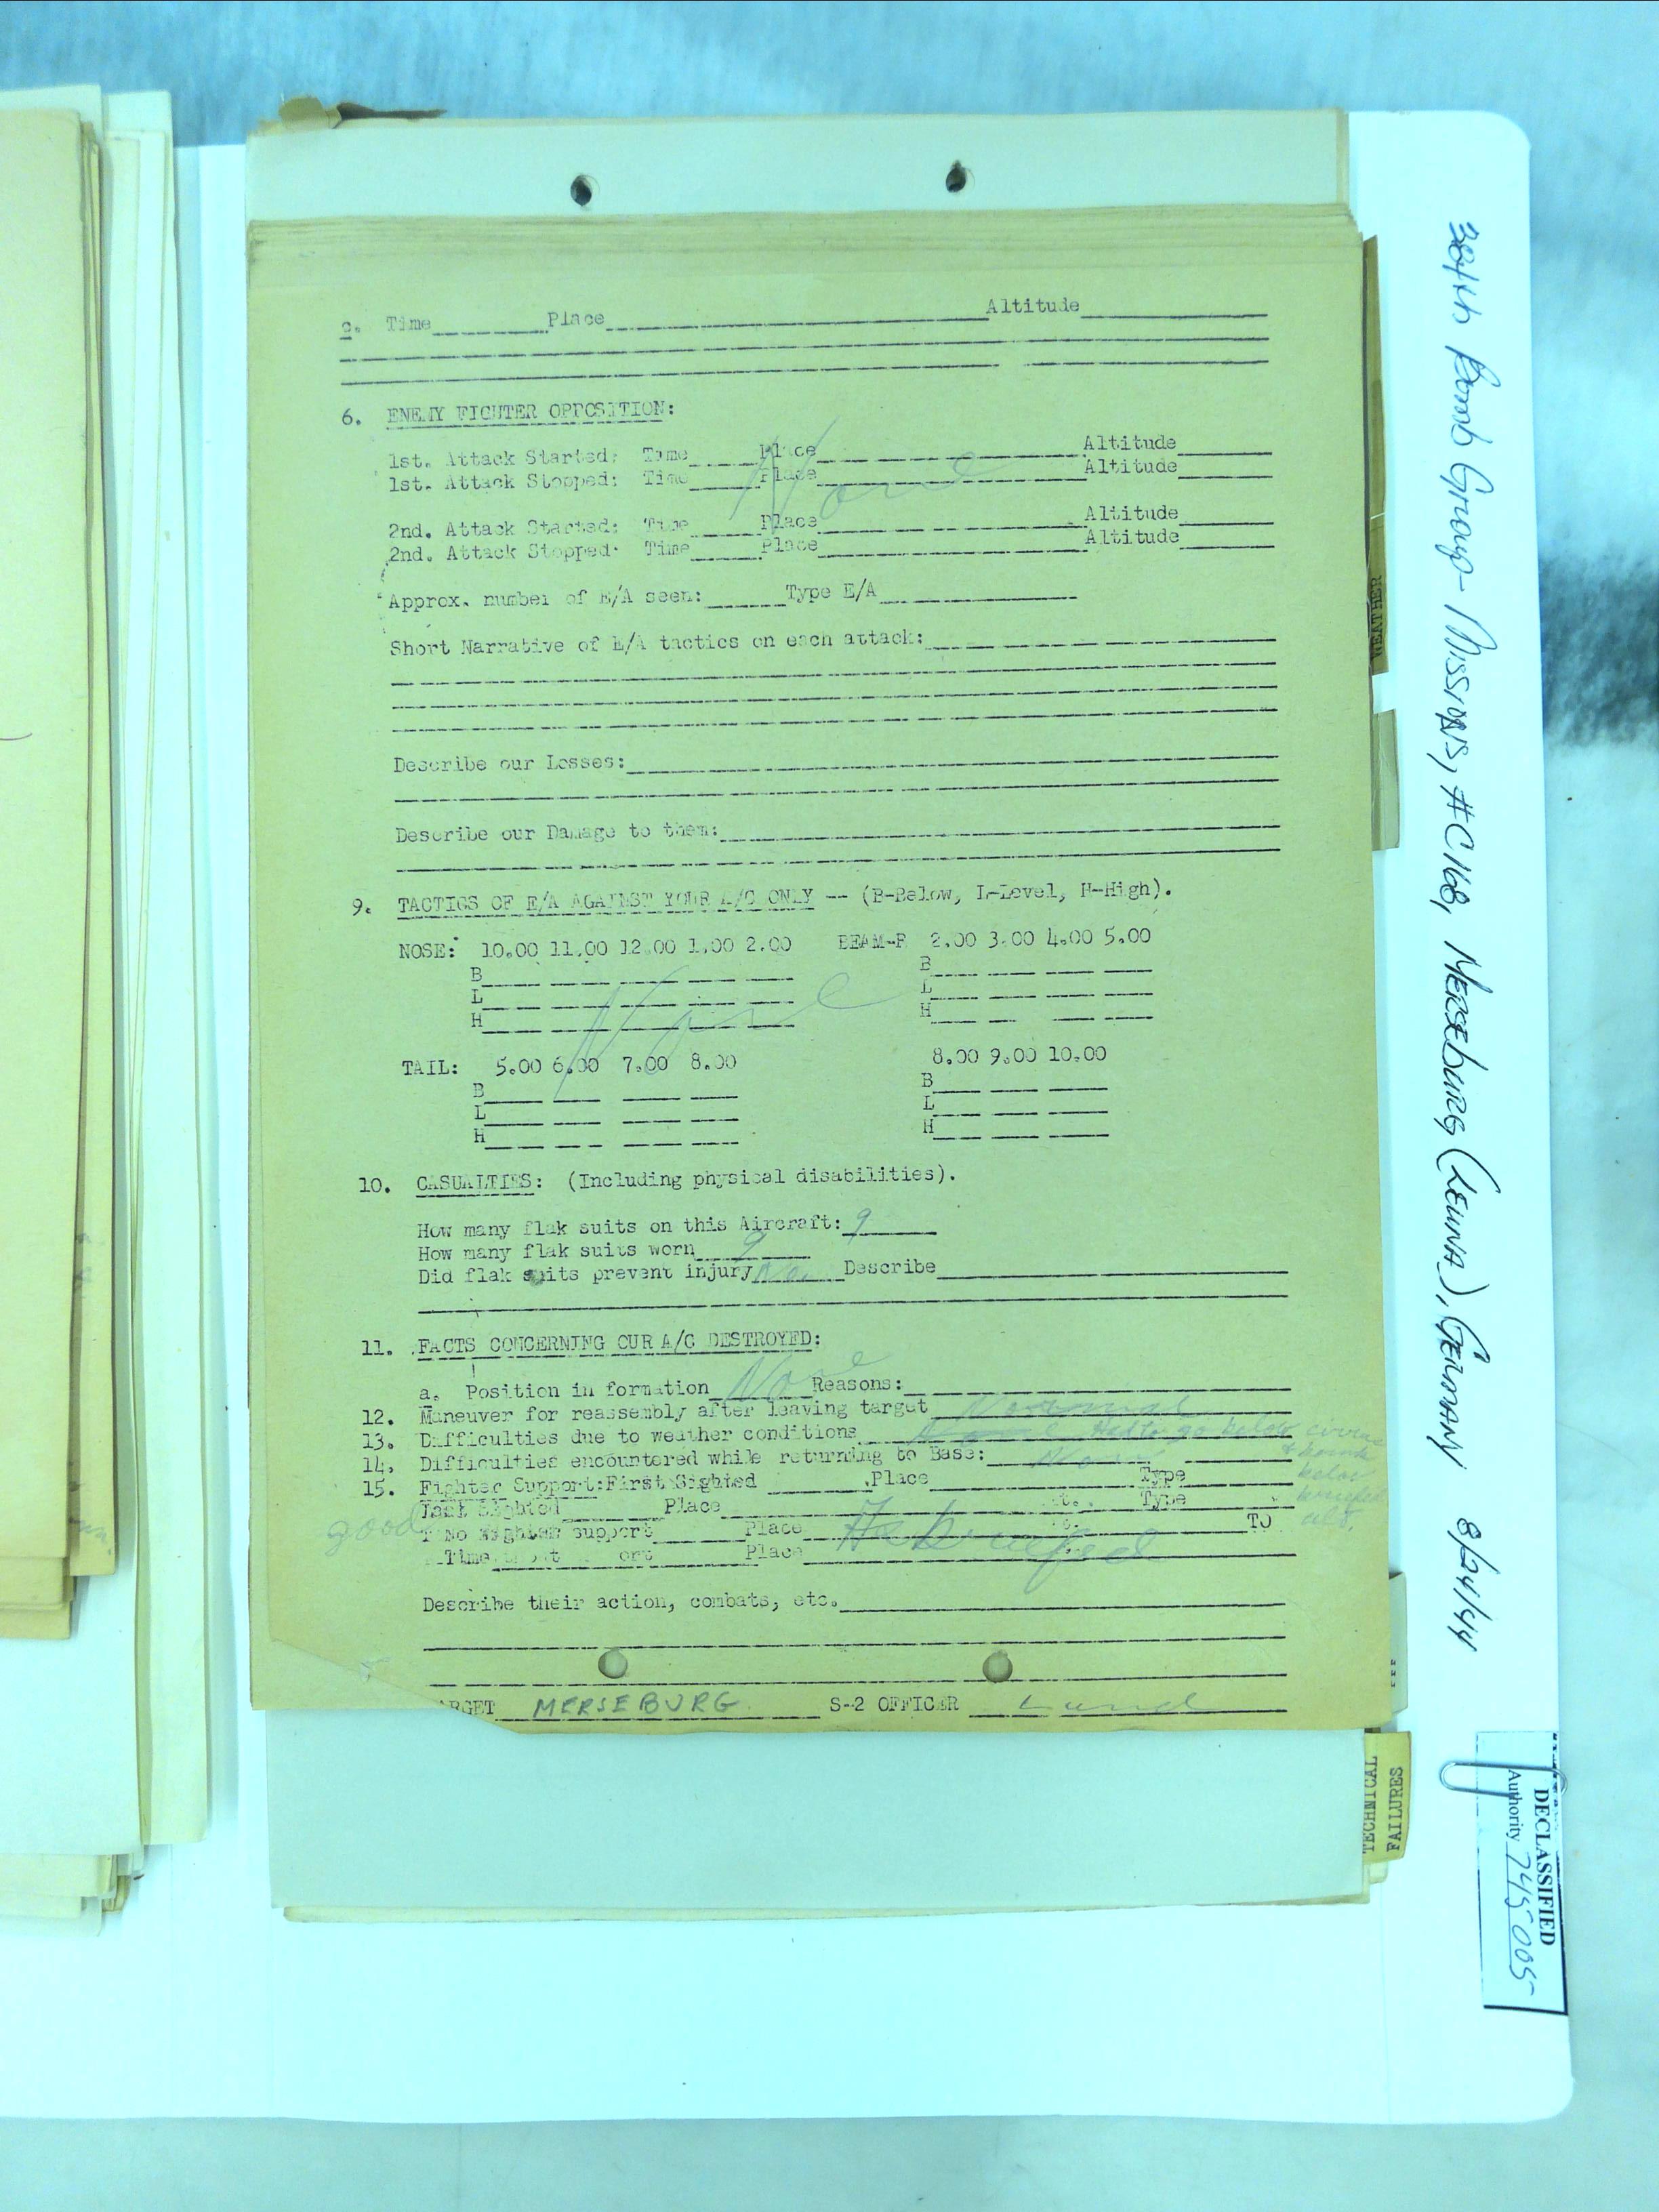 c. Time Place Altitude
6. ENEMY FIGHTER OPPOSITION:
1st. Attack Started: Time Place Altitude
1st. Attack Stopped: Time Place Altitude
None
2nd. Attack Started: Time Place Altitude
2nd. Attack Stopped: Time Place Altitude
Approx. number of E/A seen: Type E/A
Short Narrative of E/A tactics on each attack:
Describe our Losses:
Describe our Damage to them:
9. TACTICS OF E/A AGAINST YOUR A/C ONLY -- (B-Below, L-Level, H-High).
NOSE: 10.00 11.00 12.00 1.00 2.00 BEAM-R 2.00 3.00 4.00 5.00
B B
L L
H H
None
TAIL: 5.00 6.00 7.00 8.00 8.00 9.00 10.00
B B
L L
H H
10. CASUALTIES: (Including physical disabilities).
How many flak suits on this Aircraft: 9
How many flak suits worn 9
Did flak suits prevent injury No. Describe
11. FACTS CONCERNING OUR A/C DESTROYED:
a. Position in formation None Reasons:
12. Maneuver for reassembly after leaving target Normal
13. Difficulties due to weather conditions None Had to go below cirrus & bomb below briefed alt.
14. Difficulties encountered while returning to Base: None
15. Fighter Support: First Sighted Place Type
Last Sighted Place Type
good No Fighter Support Place As briefed TO
Time Place
Describe their action, combats, etc.
RGET MERSEBURG S-2 OFFICER Lund
384th Bomb Group - Missions, #C168, MERSEburg (LEUNA), GERMANY 8/24/44
WEATHER
TECHNICAL
FAILURES
DECLASSIFIED
Authority 745005